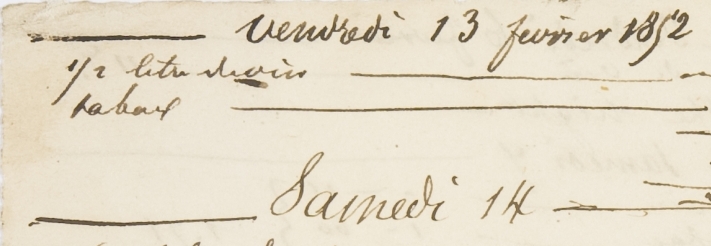 Vendredi 13 fevrier 1852
1/2 litre de vin
tabac
Samedi 14